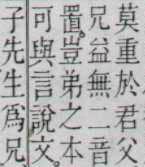 莫重於君父
兄益無二音
置豈弟之本
可與言說文
子先生爲兄